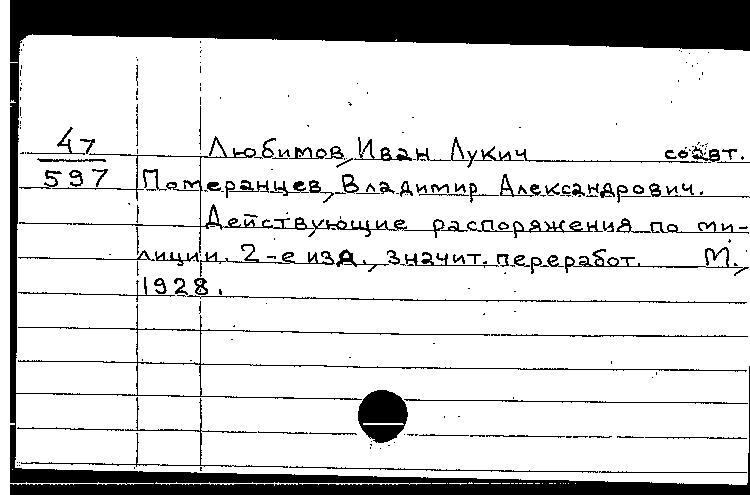 47
597
Любимов, Иван Лукич соавт.
Померанцев, Владимир Александрович.
Действующие распоряжения по ми-
лиции. 2-е изд., значит. переработ. М.,
1928.